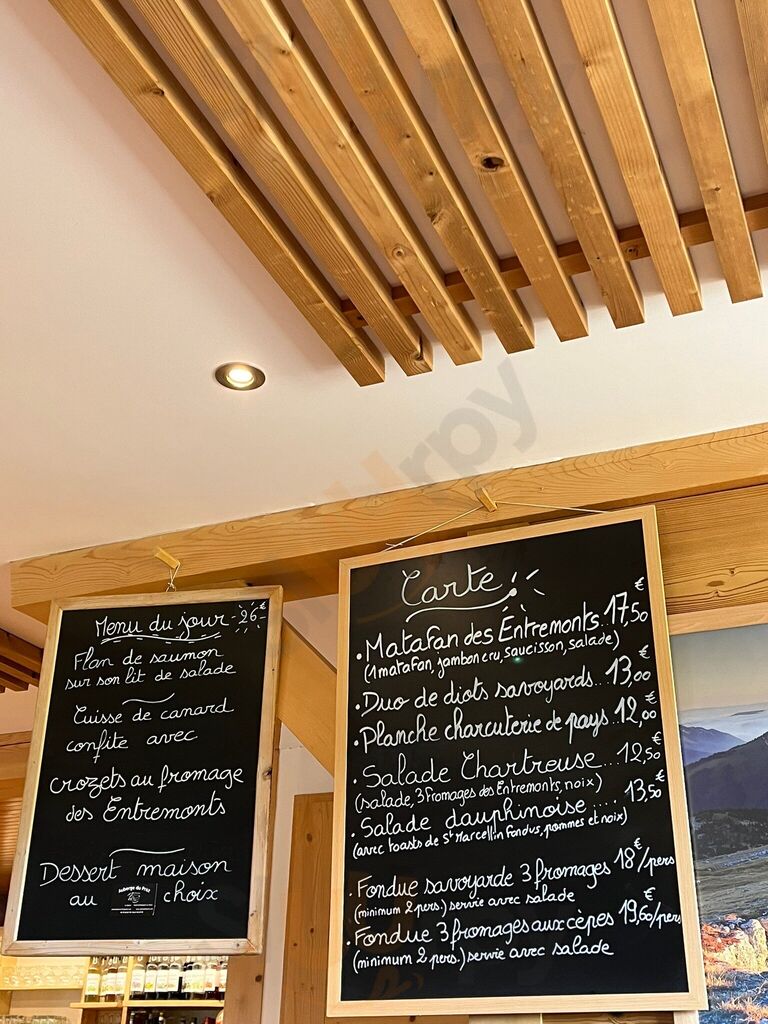 Menu du jour - 26€ -
Flan de saumon
sur son lit de salade
Cuisse de canard
confite avec
crozets au fromage
des Entremonts
Dessert maison
au choix
Auberge du Prat
Carte
. Matafan des Entremonts. 17,50€
(1 matafan, jambon cru, saucisson, salade)
. Duo de diots savoyards... 13,00€
. Planche charcuterie de pays. 12,00€
. Salade Chartreuse... 12,50€
(salade, 3 fromages des Entremonts, noix)
. Salade dauphinoise .... 13,50€
(avec toasts de St Marcellin fondus, pommes et noix)
. Fondue savoyarde 3 fromages 18€/pers
(minimum 2 pers.) servie avec salade
. Fondue 3 fromages aux cèpes 19,60€/pers
(minimum 2 pers.) servie avec salade